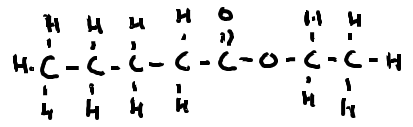 H H H H O H H
H - C - C - C - C - C - O - C - C - H
H H H H H H